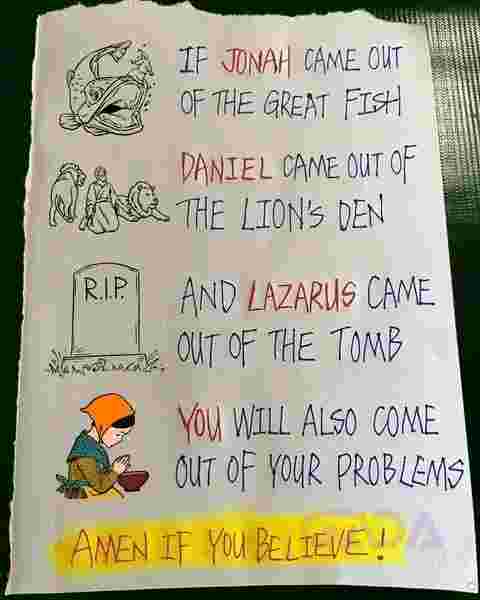 IF JONAH CAME OUT
OF THE GREAT FISH
DANIEL CAME OUT OF
THE LION'S DEN
R.I.P.
AND LAZARUS CAME
OUT OF THE TOMB
YOU WILL ALSO COME
OUT OF YOUR PROBLEMS
AMEN IF YOU BELIEVE!